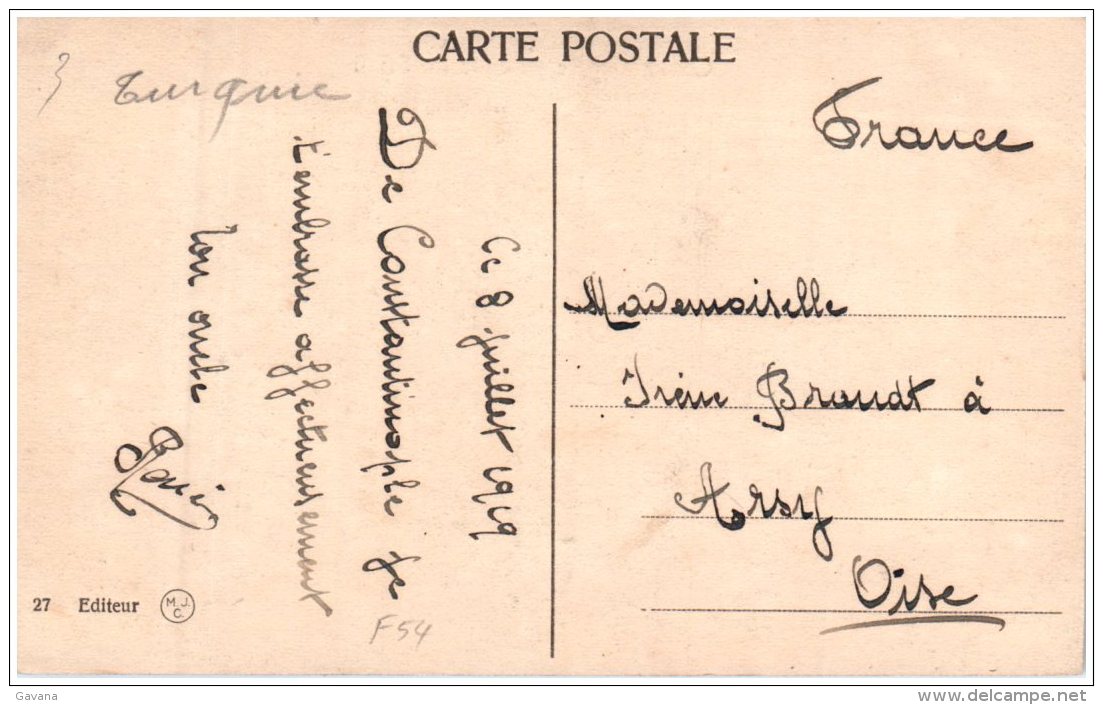 CARTE POSTALE
Turquie
Ce 8 juillet 1919
De Constantinople je
t'embrasse affectueusement
ton oncle
France
Mademoiselle
Irène Brandt à
Arsy
Oise
27 Editeur M.J.C.
F54
Gavana
www.delcampe.net